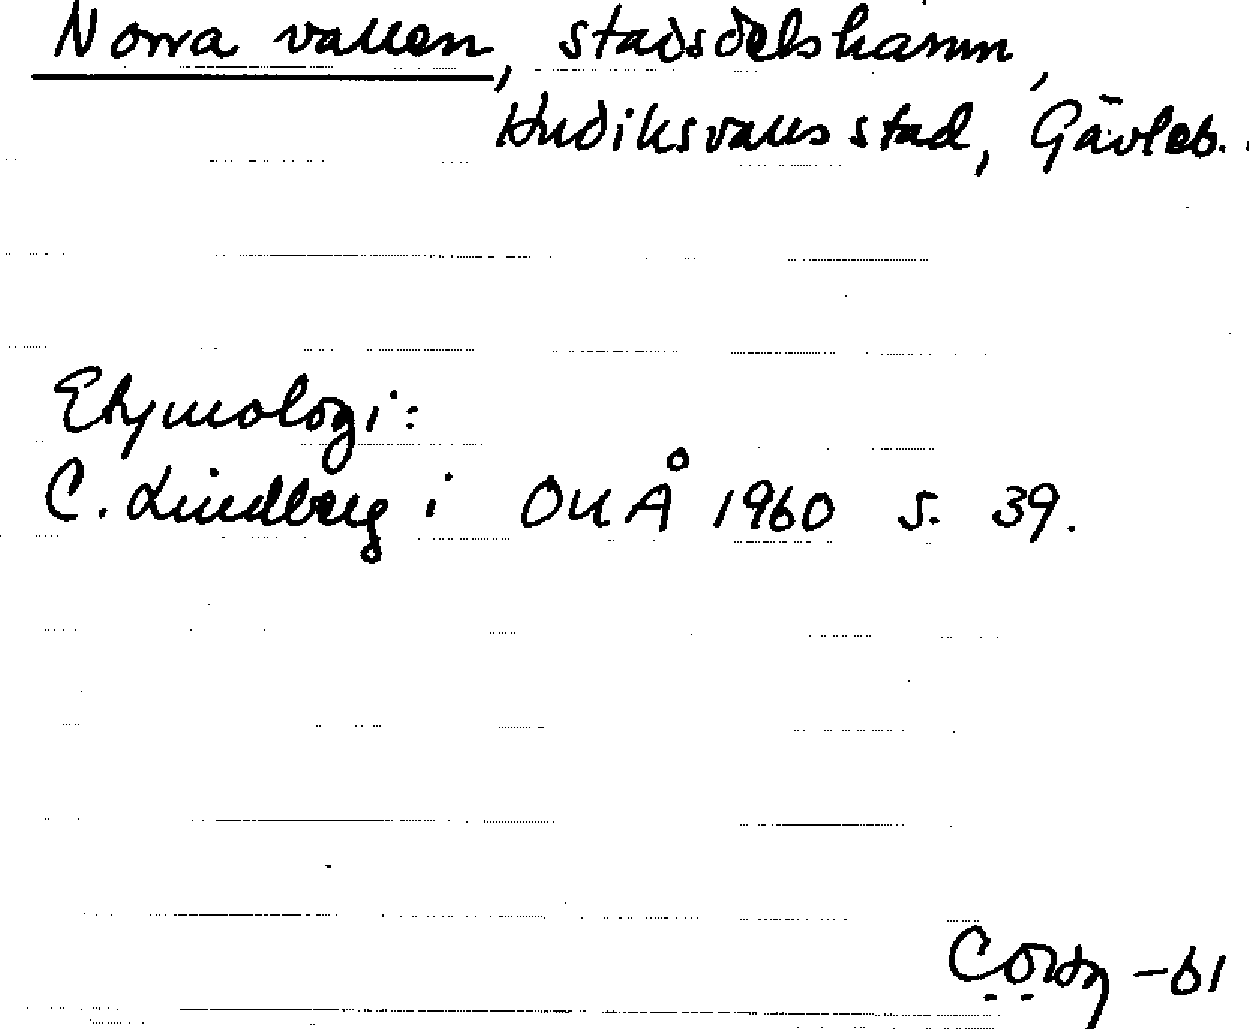 Norra vallen, stadsdelsnamn,
Hudiksvalls stad, Gävleb.
Etymologi:
C. Lindberg i OUÅ 1960 s. 39.
-61